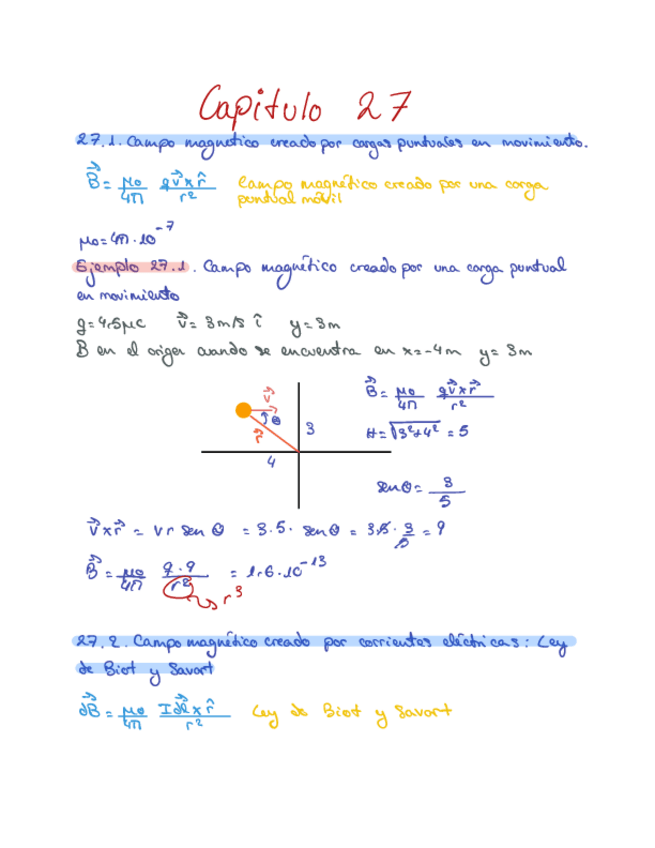 Capitulo 27
27.1. Campo magnetico creado por cargas puntuales en movimiento.
B⃗ = μo/4π qv⃗ x r̂/r² Campo magnético creado por una carga
puntual móvil
μo = 4π·10⁻⁷
Ejemplo 27.1. Campo magnético creado por una carga puntual
en movimiento
q=4,5μC v⃗ = 3m/s î y=3m
B en el origen cuando se encuentra en x=-4m y=3m
v⃗
θ
r⃗
3
4
B⃗ = μo/4π qv⃗ x r⃗/r²
H=√3²+4² = 5
senθ = 3/5
v⃗ x r⃗ = v r sen θ = 3·5· sen θ = 3·5· 3/5 = 9
B⃗ = μo/4π q·9/r² = 1,6·10⁻¹³
r³
27.2. Campo magnético creado por corrientes eléctricas: Ley
de Biot y Savart
dB⃗ = μo/4π Idl⃗ x r̂/r² Ley de Biot y Savart